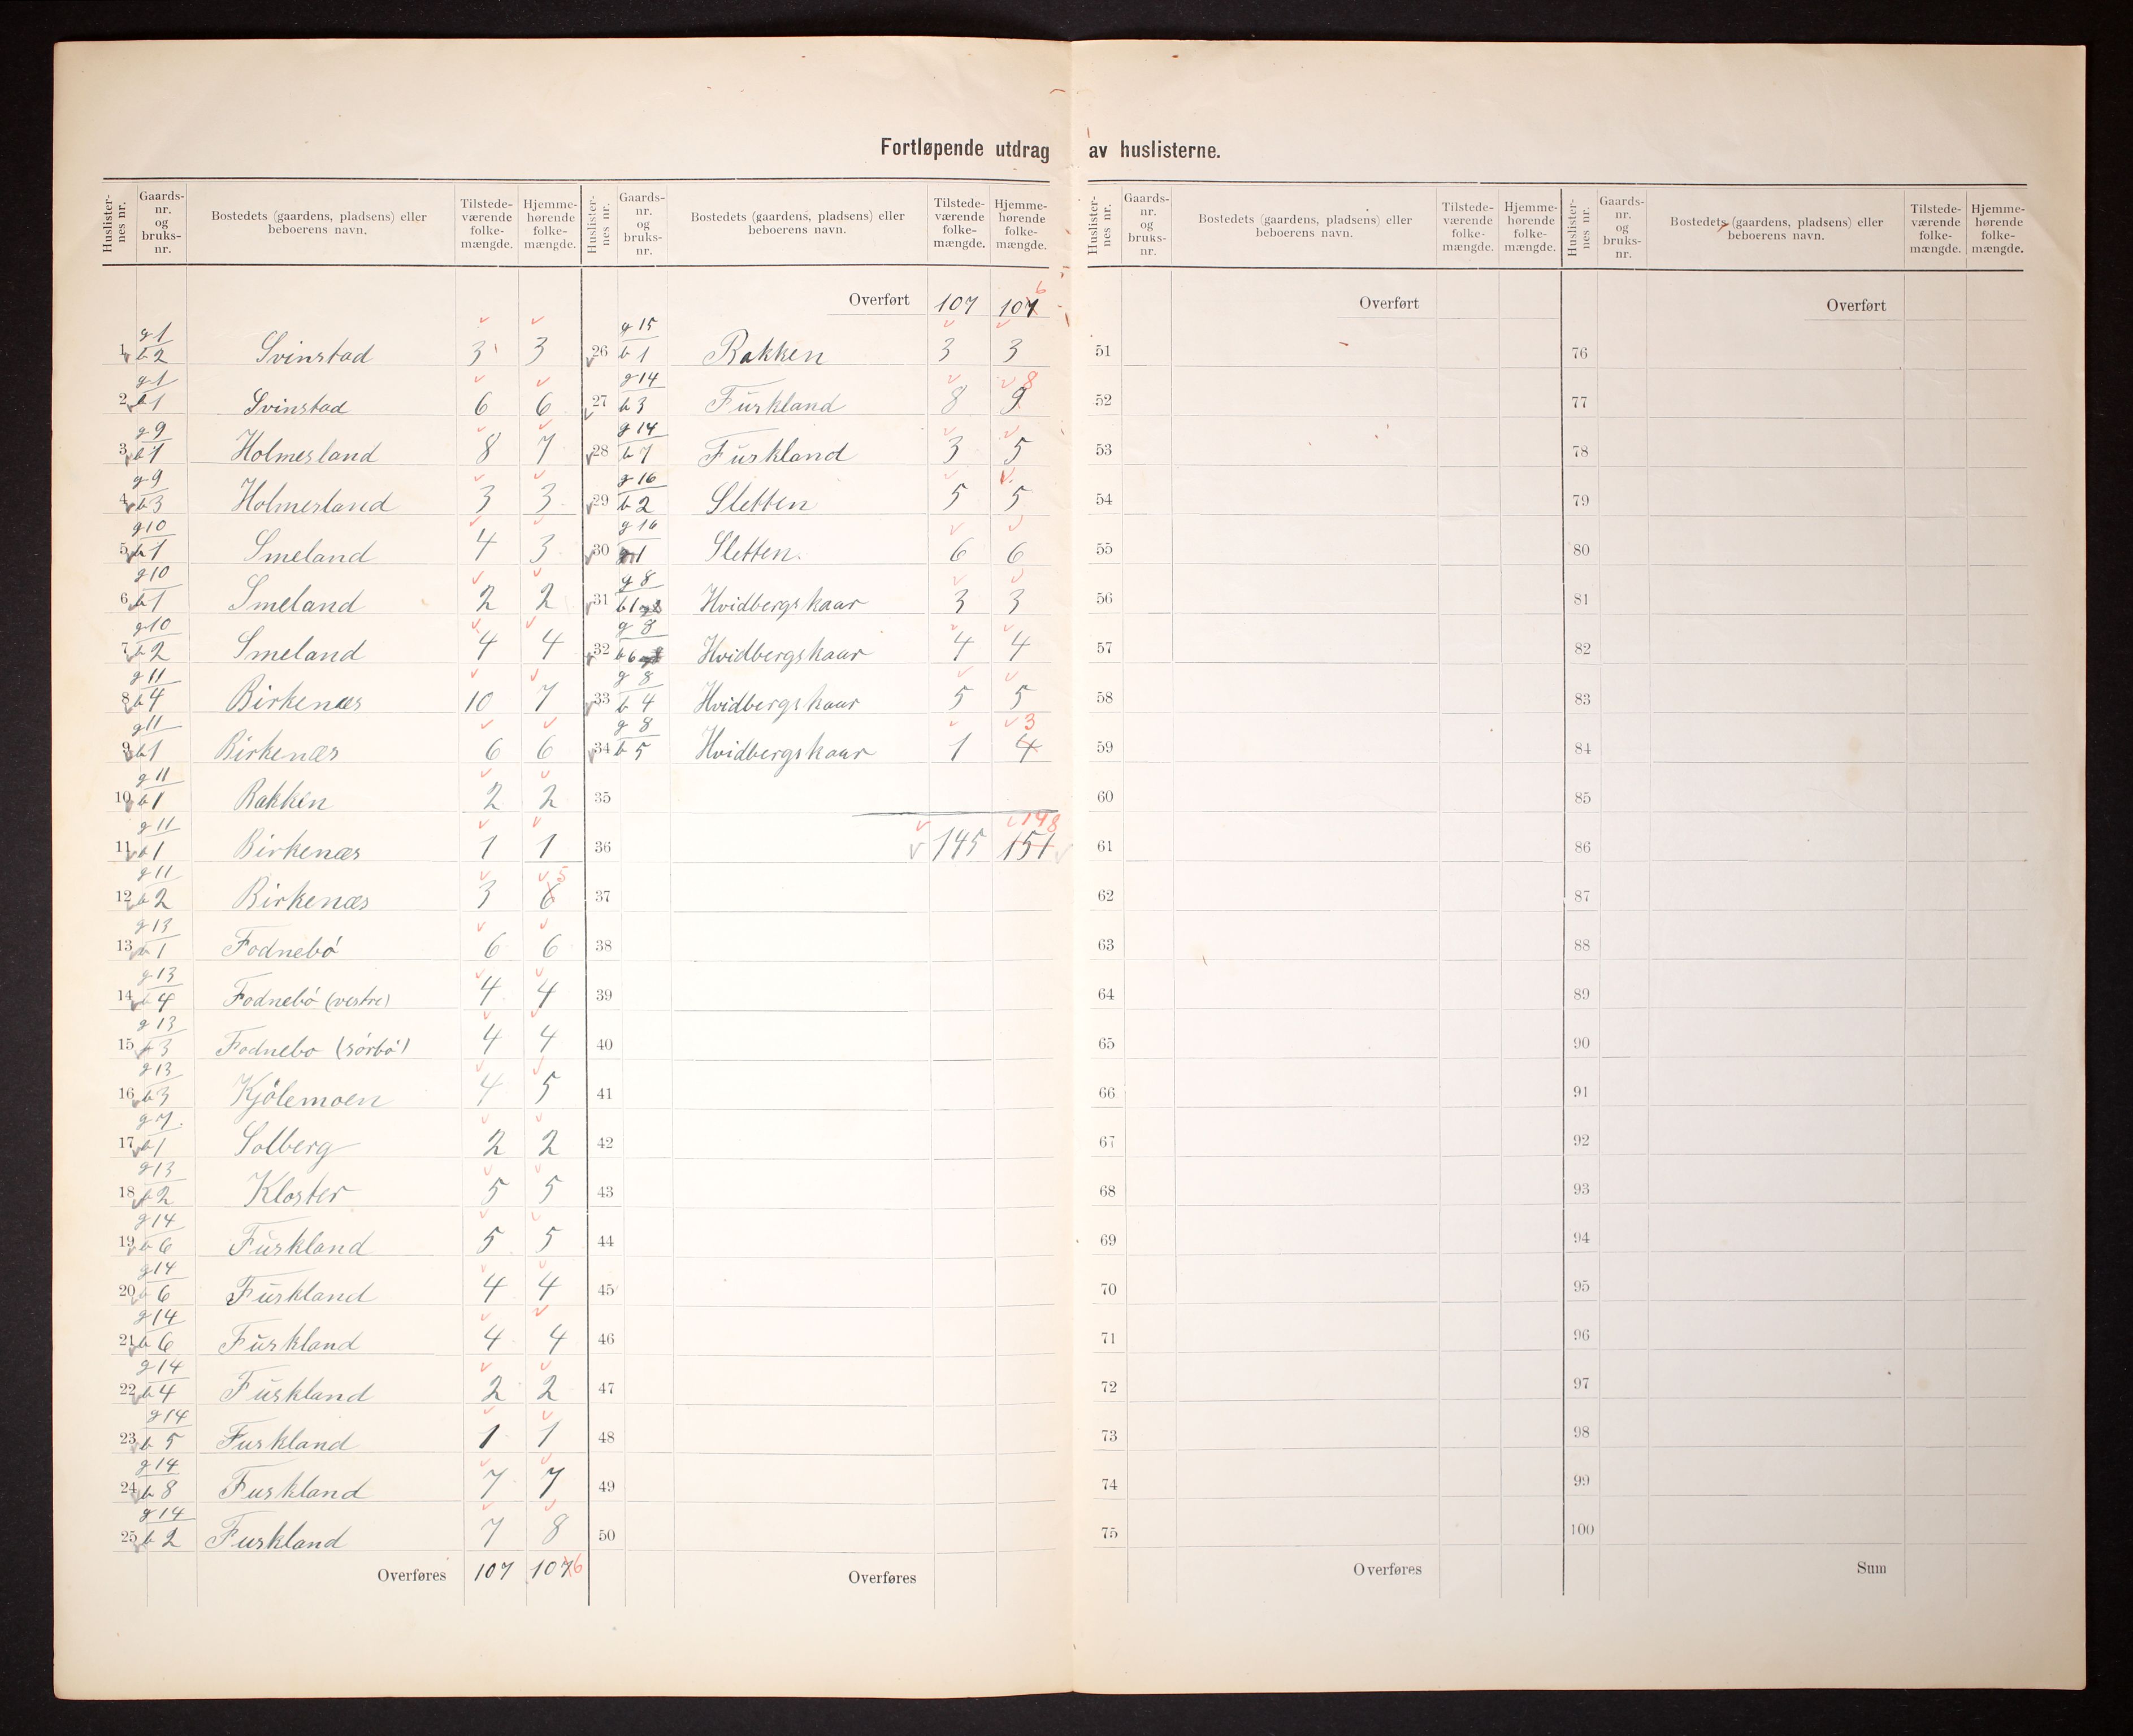 Fortløpende utdrag av huslisterne.
Huslister-nes nr. Gaards-nr. og bruks-nr. Bostedets (gaardens, pladsens) eller beboerens navn. Tilstede-værende folke-mængde. Hjemme-hørende folke-mængde.
1 g 1 b 2 Svinstad 3 3
2 g 1 b 1 Svinstad 6 6
3 g 9 b 1 Holmesland 8 7
4 g 9 b 3 Holmesland 3 3
5 g 10 b 1 Smeland 4 3
6 g 10 b 1 Smeland 2 2
7 g 10 b 2 Smeland 4 4
8 g 11 b 4 Birkenæs 10 7
9 g 11 b 1 Birkenæs 6 6
10 g 11 b 1 Bakken 2 2
11 g 11 b 1 Birkenæs 1 1
12 g 11 b 2 Birkenæs 3 6 5
13 g 13 b 1 Fodnebö 6 6
14 g 13 b 4 Fodnebö (vestre) 4 4
15 g 13 b 3 Fodnebo (sörbö) 4 4
16 g 13 b 3 Kjölemoen 4 5
17 g 7. b 1 Solberg 2 2
18 g 13 b 2 Kloster 5 5
19 g 14 b 6 Fuskland 5 5
20 g 14 b 6 Fuskland 4 4
21 g 14 b 6 Fuskland 4 4
22 g 14 b 4 Fuskland 2 2
23 g 14 b 5 Fuskland 1 1
24 g 14 b 8 Fuskland 7 7
25 g 14 b 2 Fuskland 7 8
Overføres 107 107 6
Huslister-nes nr. Gaards-nr. og bruks-nr. Bostedets (gaardens, pladsens) eller beboerens navn. Tilstede-værende folke-mængde. Hjemme-hørende folke-mængde.
Overført 107 107 6
26 g 15 b 1 Bakken 3 3
27 g 14 b 3 Fuskland 8 9 8
28 g 14 b 7 Fuskland 3 5
29 g 16 b 2 Sletten 5 5
30 g 16 1 Sletten. 6 6
31 g 8 b 1 Hvidbergskaar 3 3
32 g 8 b 6 Hvidbergskaar 4 4
33 g 8 b 4 Hvidbergskaar 5 5
34 g 8 b 5 Hvidbergskaar 1 4 3
35
36 145 151 148
37
38
39
40
41
42
43
44
45
46
47
48
49
50
Overføres
Huslister-nes nr. Gaards-nr. og bruks-nr. Bostedets (gaardens, pladsens) eller beboerens navn. Tilstede-værende folke-mængde. Hjemme-hørende folke-mængde.
Overført
51
52
53
54
55
56
57
58
59
60
61
62
63
64
65
66
67
68
69
70
71
72
73
74
75
Overføres
Huslister-nes nr. Gaards-nr. og bruks-nr. Bostedets (gaardens, pladsens) eller beboerens navn. Tilstede-værende folke-mængde. Hjemme-hørende folke-mængde.
Overført
76
77
78
79
80
81
82
83
84
85
86
87
88
89
90
91
92
93
94
95
96
97
98
99
100
Sum